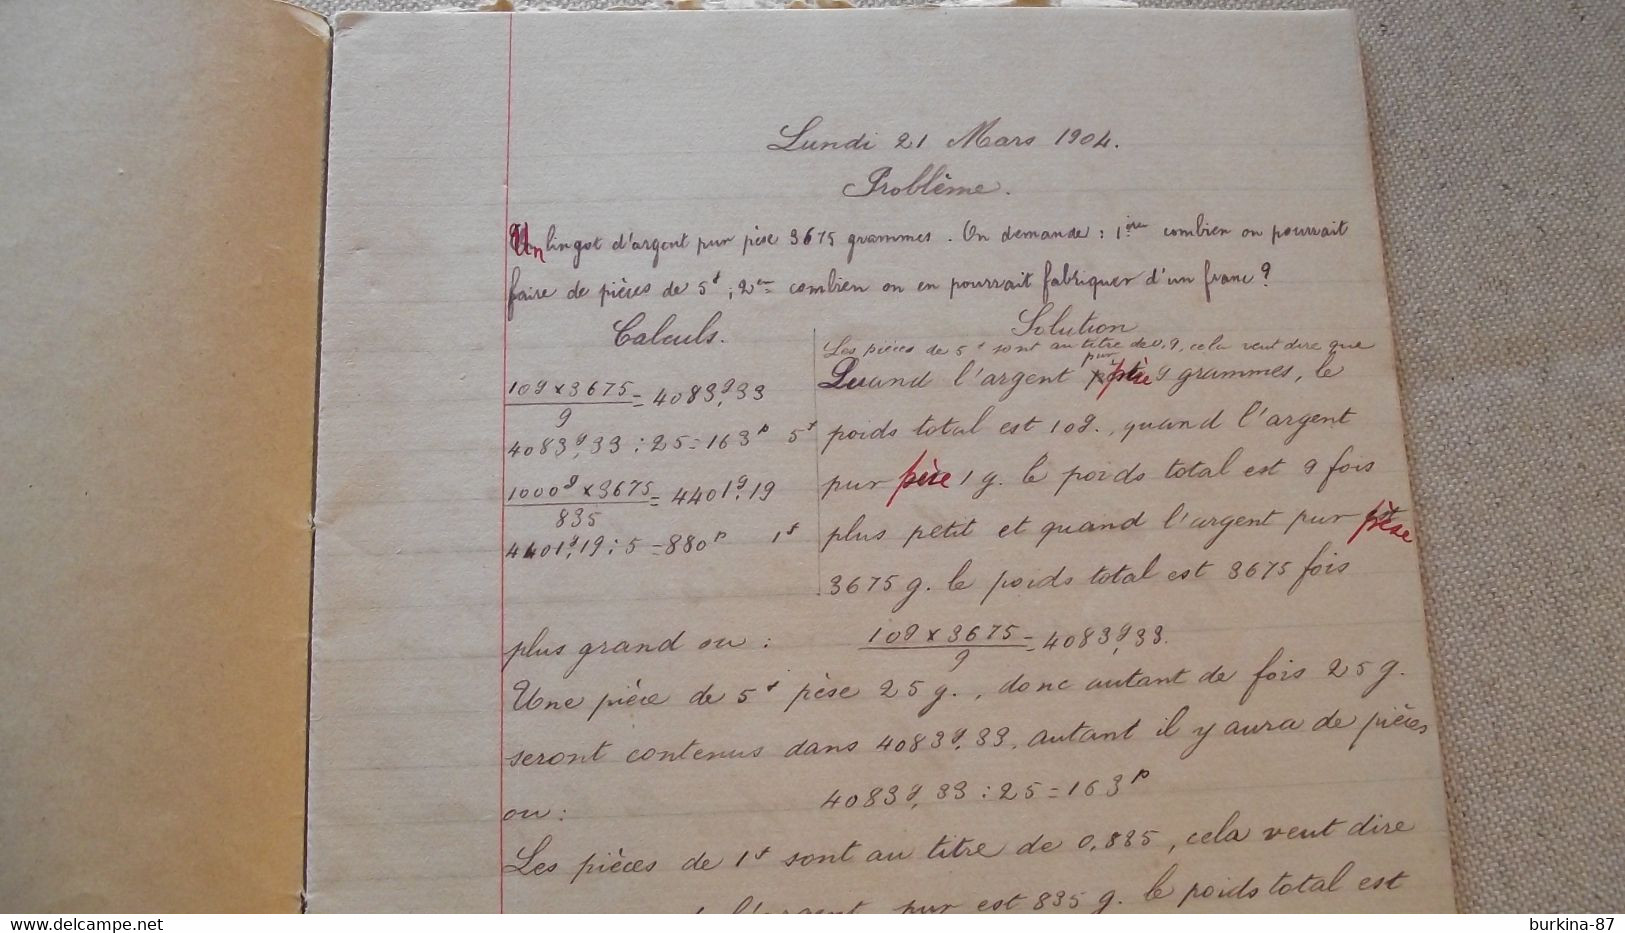 Lundi 21 Mars 1904.
Problème.
Un lingot d'argent pur pèse 3675 grammes. On demande : 1ère combien on pourrait
faire de pièces de 5f ; 2em combien on en pourrait fabriquer d'un franc ?
Calculs.
10g x 3675 / 9 = 4083g,33
4083g,33 : 25 = 163p 5f
1000g x 3675 / 835 = 4401g,19
4401g,19 : 5 = 880p 1f
Solution
Les pièces de 5f sont au titre de 0,9, cela veut dire que
Quand l'argent pur pèse 9 grammes, le
poids total est 10g., quand l'argent
pur pèse 1 g. le poids total est 9 fois
plus petit et quand l'argent pur pèse
3675 g. le poids total est 3675 fois
plus grand ou : 10g x 3675 / 9 = 4083g,33.
Une pièce de 5f pèse 25 g., donc autant de fois 25 g.
seront contenus dans 4083g,33, autant il y aura de pièces
ou : 4083g,33 : 25 = 163p
Les pièces de 1f sont au titre de 0,835, cela veut dire
l'argent pur est 835 g. le poids total est
burkina-87